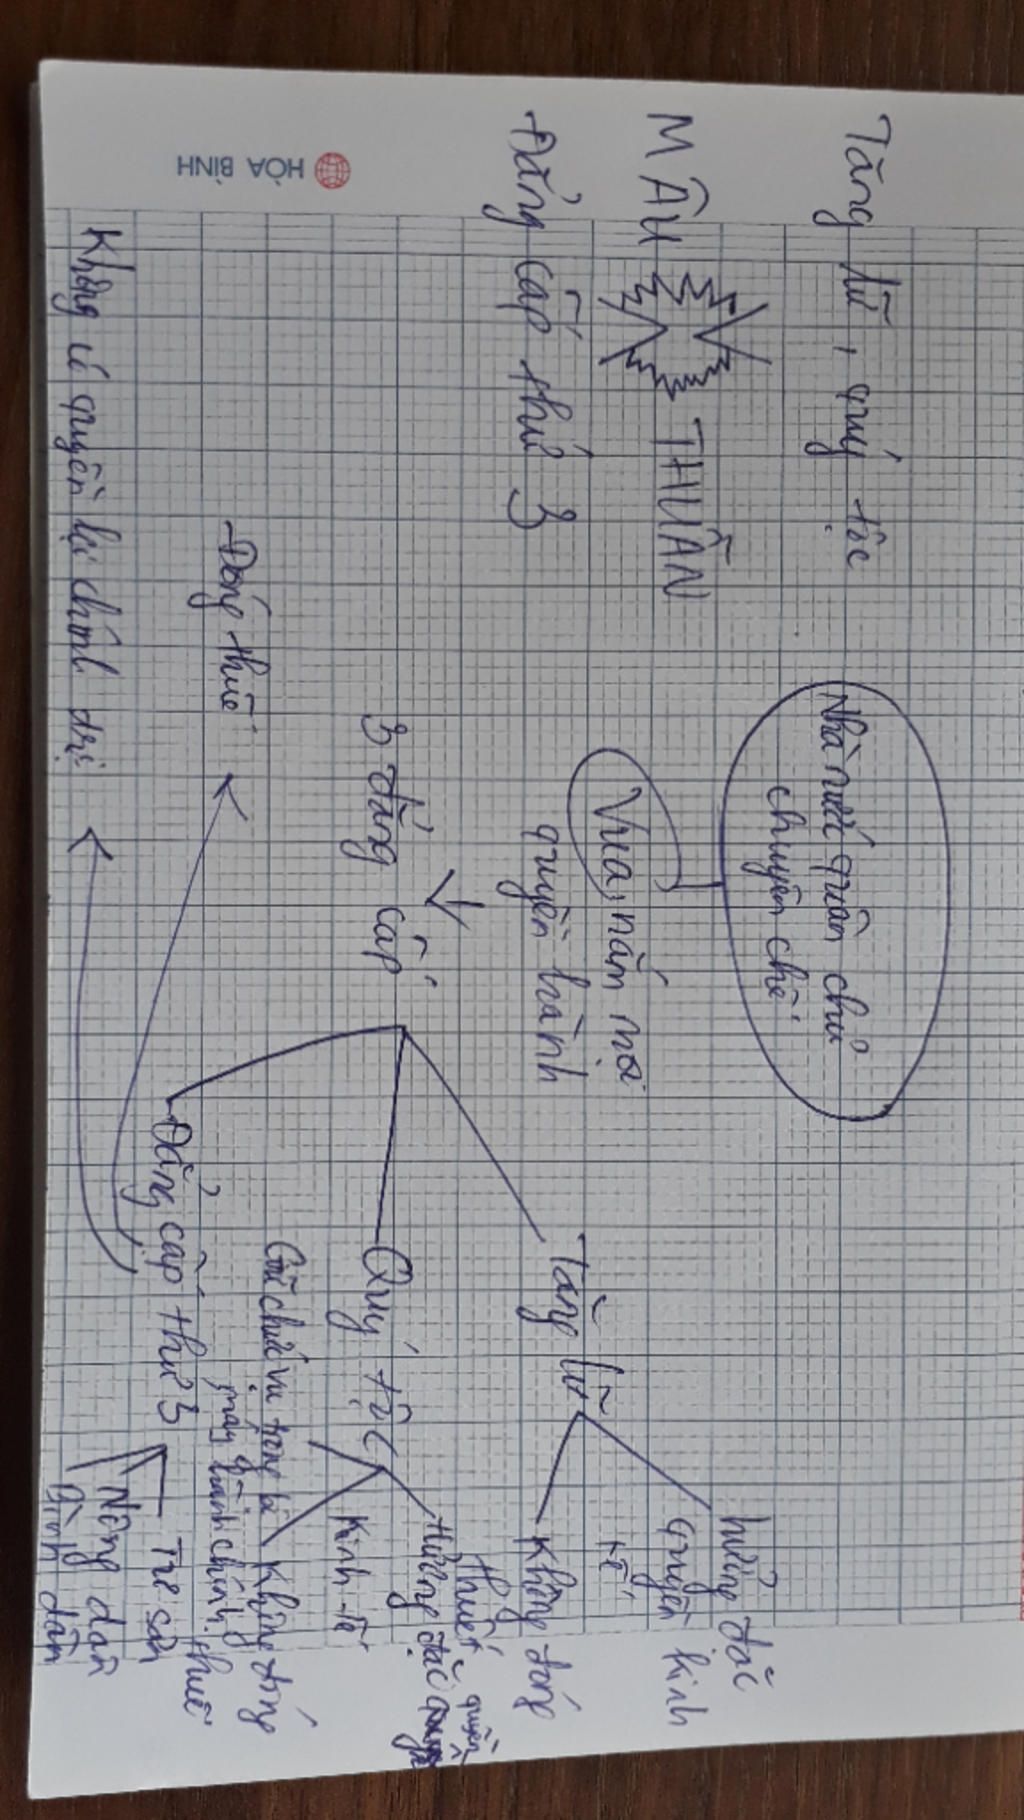 HÒA BÌNH
Tăng lữ, quý tộc
MÂU THUẪN
Đẳng cấp thứ 3
Nhà nước quân chủ
chuyên chế
Vua, nắm mọi
quyền hành
3 đẳng cấp
Tăng lữ
hưởng đặc
quyền kinh
tế
Không đóng
thuế
Quý tộc
Hưởng đặc quyền
Kinh tế
Không đóng
thuế
Giữ chức vụ trong bộ
máy hành chính
Đẳng cấp thứ 3
Tư sản
Nông dân
Bình dân
- Đóng thuế
Không có quyền lợi chính trị